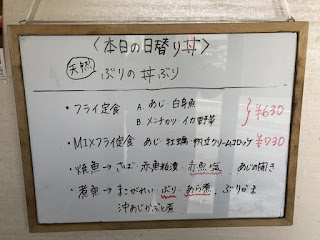 〈本日の日替り丼〉
天然 ぶりの丼ぶり
・フライ定食 A. あじ・白身魚
B. メンチカツ・イカ野菜
¥630
・MIXフライ定食 あじ・牡蠣・帆立クリームコロッケ ¥930
・焼魚→さば・赤魚粕漬・赤魚塩 あじの開き
・煮魚→まこがれい・ぶり・あら煮、ぶりかま
沖あじかぶと煮